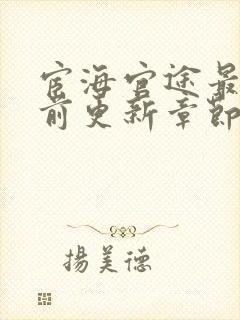 宦海官途最
前更新章節
揚美德